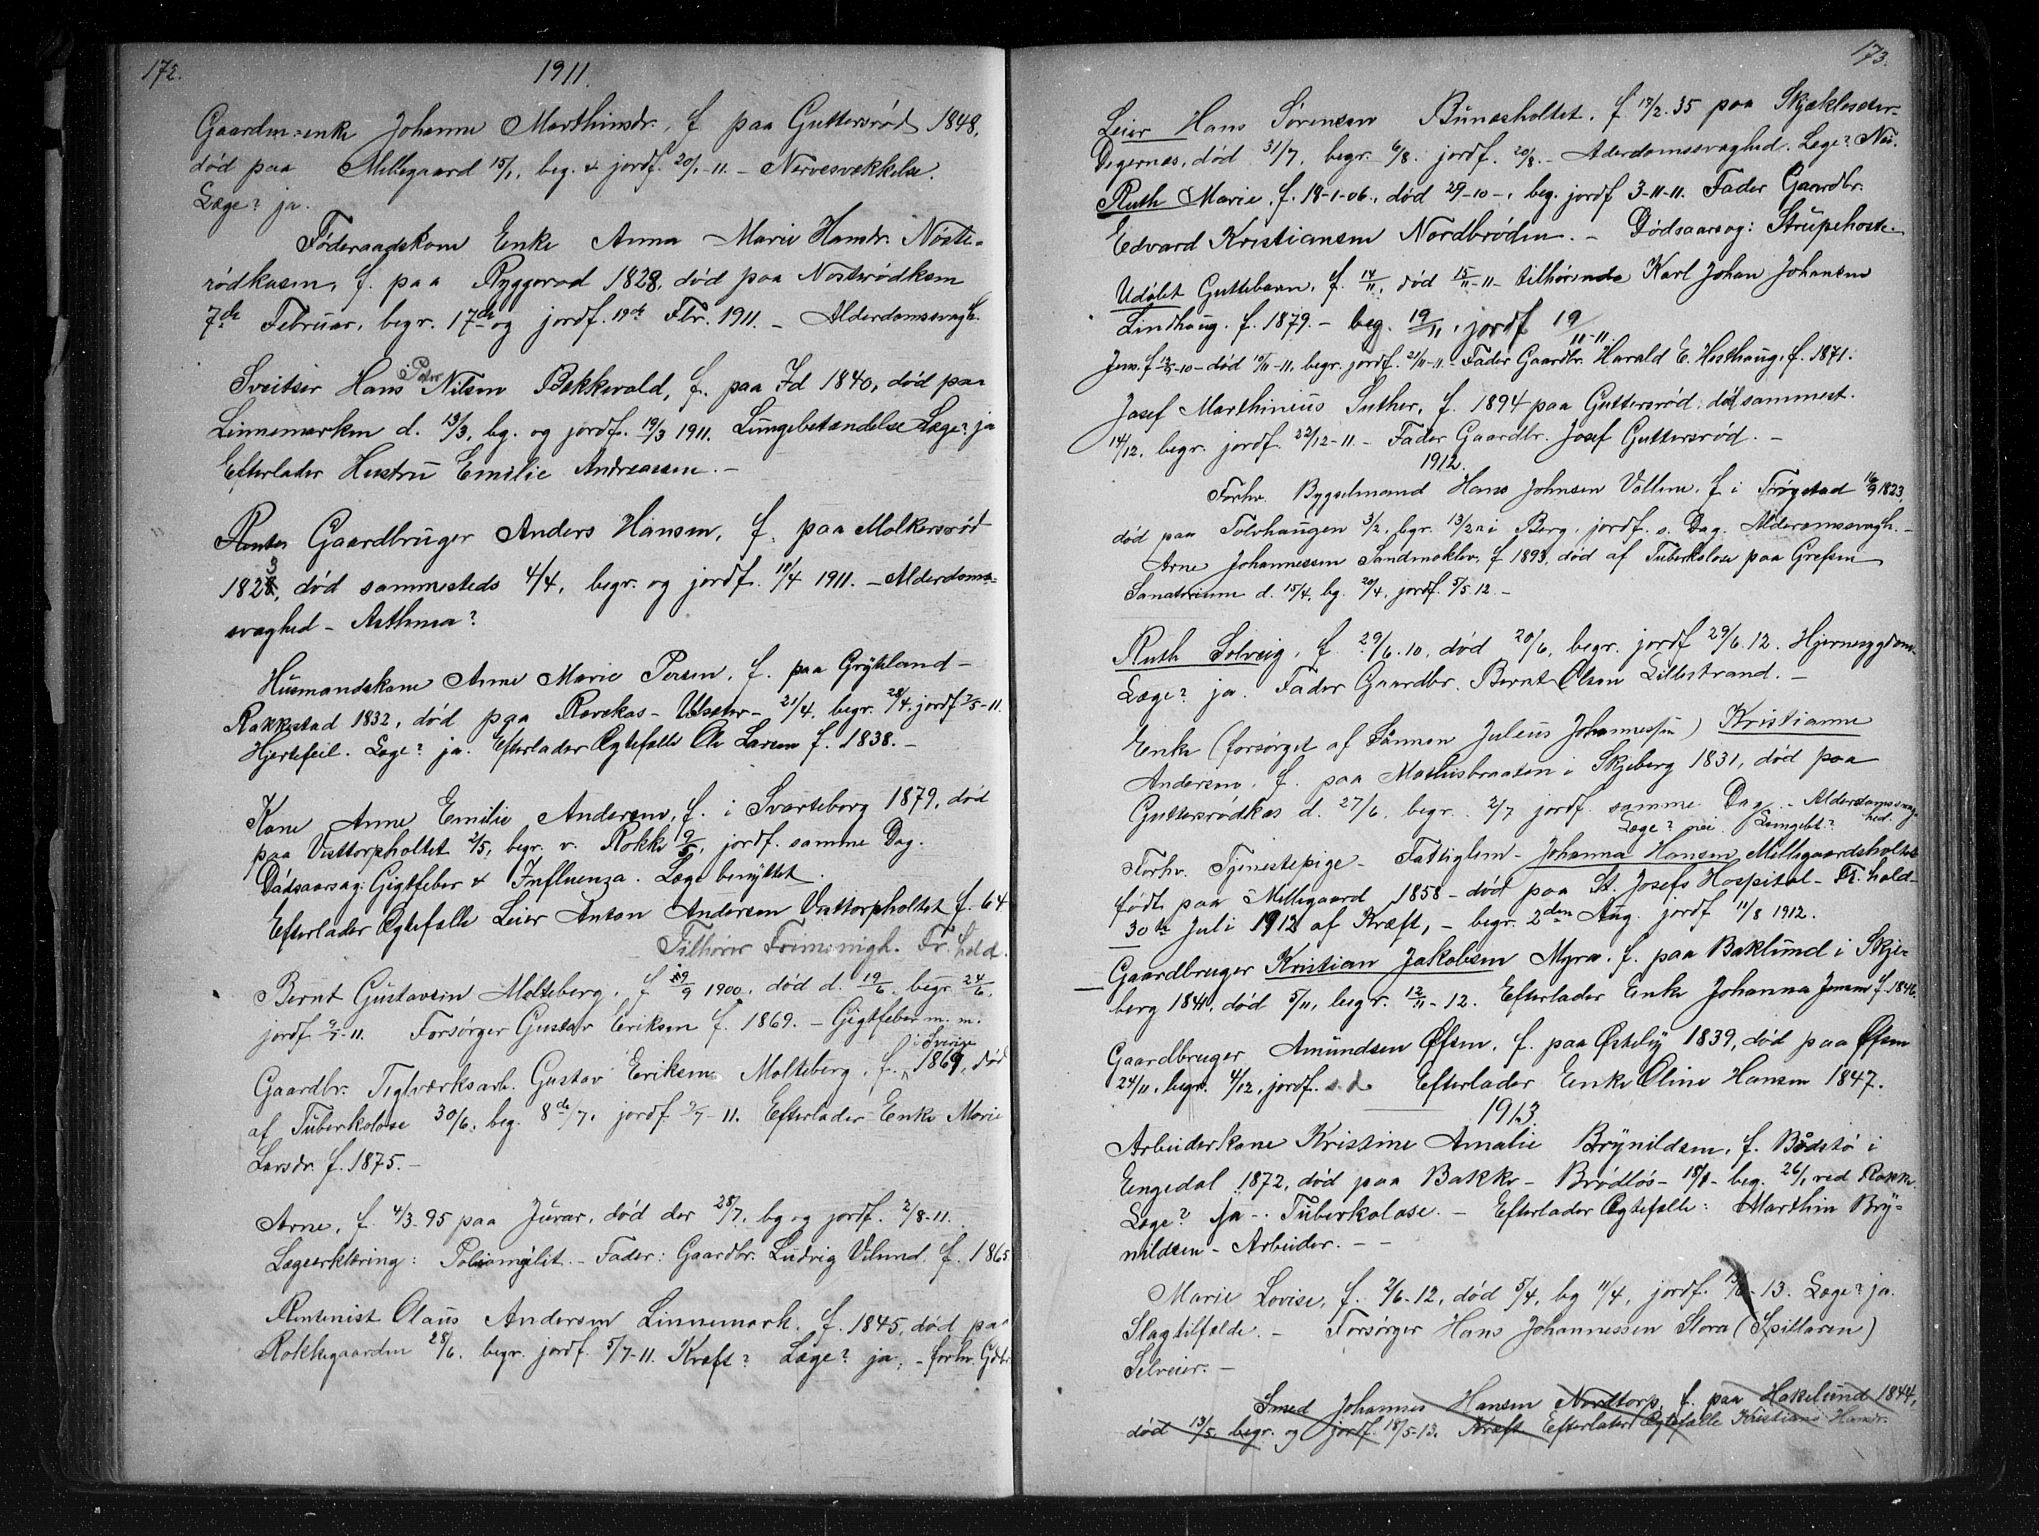 172.
1911.
Gaardm.=enke Johanne Marthinsdr., f. paa Guttersrød 1848,
død paa Mellegaard 15/1, beg. & jordf. 20/1-11. - Nervesvækkelse.
Læge? ja.
Føderaadskone Enke Anna Marie Hansdr. Nøste-
rødkasen, f. paa Ryggerød 1828, død paa Nøsterødkasen
7de Februar, begr. 17de og jordf. 19de Fbr. 1911. - Alderdomssvagh.
Sveitser Hans Peder Nilsen Bekkevold, f. paa Id 1840, død paa
Linnemarken d. 13/3, bg. og jordf. 19/3 1911. Lungebetændelse Læge? ja
Efterlader Hustru Emilie Andreassen. -
Gaardbruger Anders Hansen, f. paa Molkersrød
1823, død sammesteds 4/4, begr. og jordf. 10/4 1911. - Alderdoms=
svaghed - Asthma?
Husmandskone Anne Marie Persen, f. paa Gryteland -
Rakkestad 1832, død paa Revekas - Ulseter - 21/4, begr. 28/4, jordf 7/5-11.
Hjertefeil. Læge? ja. Efterlader Ægtefælle Ole Larsen f. 1838. -
Kone Anne Emilie Andersen, f. i Svarteborg 1879, død
paa Visttorpholtet 2/5, begr. v. Rokke 9/5, jordf. samme Dag.
Dødsaarsag: Gigtfeber & Influenza. Læge benyttet.
Efterlader Ægtefælle Leier Anton Andersen Visttorpholtet f. 64
Tilhører Fr.hald.
Bernt Gustavsen Molteberg, f. 29/9 1900, død d. 19/6, begr. 24/6,
jordf 2/7-11. Forsørger Gustav Eriksen f. 1869. - Gigtfeber m. m.
i Sverige
Gaardbr. Teglværksarb. Gustav Eriksen Molteberg, f. 1869, død
af Tuberkolose 30/6, beg. 8de/7, jordf. 9/7-11. Efterlader Enke Marie
Larsdr. f. 1875. -
Arne, f. 4/3-95 paa Juvar, død der 28/7, bg og jordf. 2/8-11.
Lægeerklæring: Poliomylit. - Fader: Gaardbr. Ludvig Vilund f. 1865
Rentenist Olaus Andersen Linnemark, f. 1845, død paa
Rokkegaarden 28/6, begr. jordf. 5/7-11. Kræft? Læge? ja. - forhv. Gdbr.
173.
Leier Hans Sørensen Bunesholtet, f. 17/2.35 paa Skjæklesæter-
Degernes, død 31/7, begr. 6/8. jordf. 20/8. - Alderdomssvaghed. Læge? Nei.
Ruth Marie, f. 18-1-06, død 29-10-, beg. jordf 3-11-11. Fader Gaardbr.
Edvard Kristiansen Nordbrøden. - Dødsaarsag: Strupehoste.
Udøbt Guttebarn, f. 14/11, død 15/11-11 - tilhørende Karl Johan Johansen
Lindhaug, f. 1879. - beg. 19/11, jordf 19/11-11
Jens f 12/5-10 - død 10/11-11, begr. jordf. 21/11-11 - Fader Gaardbr. Harald E. Hesthaug, f. 1871.
Josef Marthinius Luther, f. 1894 paa Guttersrød, død sammest.
14/12, begr. jordf. 22/12-11. - Fader Gaardbr. Josef Guttersrød. -
1912.
Forhv. Bygselmand Hans Johnsen Vollene, f. i Trøgstad 16/9 1823,
død paa Tolvhaugen 3/2, bgr. 13/2 i Berg, jordf. s. Dag. Alderdomssvagh. -
Arne Johannessen Sandmoklev, f 1893, død af Tuberkolose paa Grefsen
Sanatorium d. 15/4, bg. 20/4, jordf. 5/5.12. -
Ruth Solveig, f. 29/6.10, død 20/6, begr. jordf 29/6.12. Hjernesygdom.
Læge? ja. Fader Gaardbr. Bernt Olsen Lillestrand. -
Enke (forsørget af Sønnen Julius Johannessen) Kristianne
Andersen, f. paa Mathisbraaten i Skjeberg 1831, død paa
Guttersrødkas d. 27/6, begr. 2/7 jordf. samme Dag. - Alderdomssvag-
hed.
Læge? nei. Lungebt?
Forhv. Tjenestepige - Fattiglem - Johanna Hansen Mellegaardsholtet
født paa Mellegaard 1858 - død paa St. Josefs Hospital - Fr.hald -
30te Juli 1912 af Kræft, - begr. 2den Aug. jordf 11/8 1912.
Gaardbruger Kristian Jakobsen Myra, f. paa Baklund i Skje-
berg 1841, død 5/11, begr. 12/11-12. Efterlader Enke Johanna Jensen f. 1846.
Gaardbruger Amundsen Øfsen, f. paa Østeby 1839, død paa Øfsen
24/11, begr. 4/12, jordf. s. d. Efterlader Enke Oline Hansen 1847.
1913.
Arbeiderkone Kristine Amalie Brynildsen, f. Bødstø i
Engedal 1872, død paa Bakke - Brødløs - 18/1 - beg. 26/1 ved Rokke.
Læge? Ja - Tuberkolose. - Efterlader Ægtefælle: Marthin Bry-
nildsen - Arbeider. - -
Marie Lovise, f. 2/6-12, død 5/4, bg 11/4, jordf. 13/4-13. Læge? ja.
Slagtilfælde. - Forsørger Hans Johannessen Slora (Spillaren)
Selveier. -
Smed Johannes Hansen Nordtorp, f. paa Hakelund 1844,
død 13/5, begr. og jordf. 18/5-13. Kræft Efterlader Ægtefælle Kristiane Hansdr.